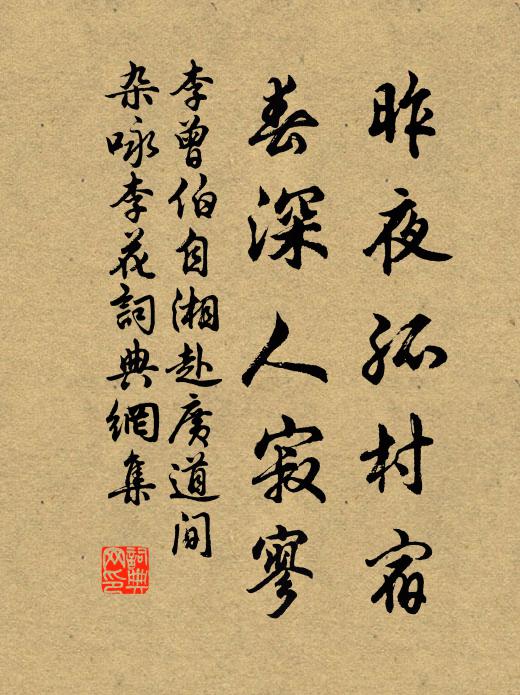 昨夜孤村宿
春深人寂寥
李曾伯自湘赴廣道间
杂咏李花詞典網集
詞典网印